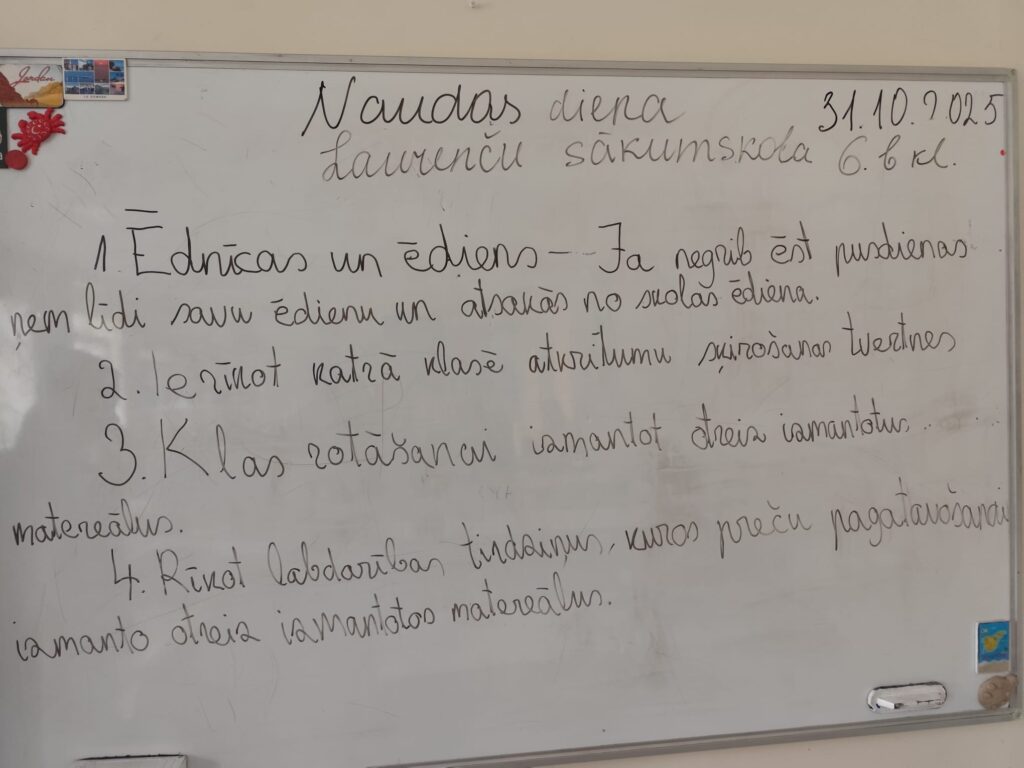 Jordan
Naudas diena 31.10.2025
Laurenču sākumskola 6. b kl.
1. Ēdnīcas un ēdiens - Ja negrib ēst pusdienas
ņem līdi savu ēdienu un atsakās no skolas ēdiena.
2. Ierīkot katrā klasē atkritumu šķirošanas tvertnes
3. Klas rotāšanai izmantot otreiz izmantotus
matereālus.
4. Rīkot labdarības tirdziņus, kuros preču pagatavošanai
izmanto otreiz izmantotos matereālus.